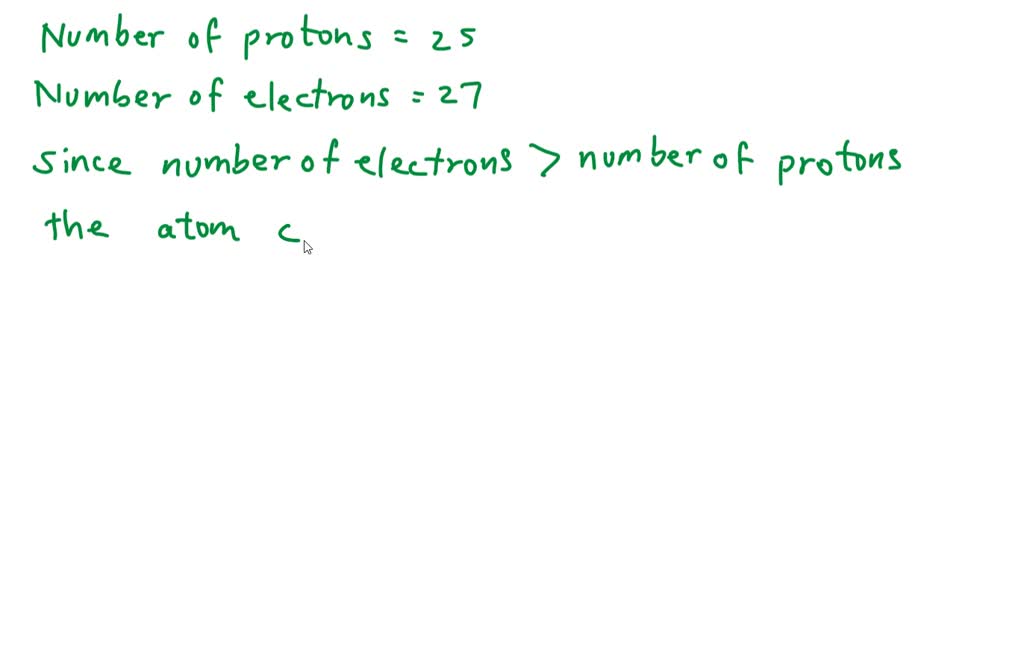 Number of protons = 25
Number of electrons = 27
since number of electrons > number of protons
the atom c